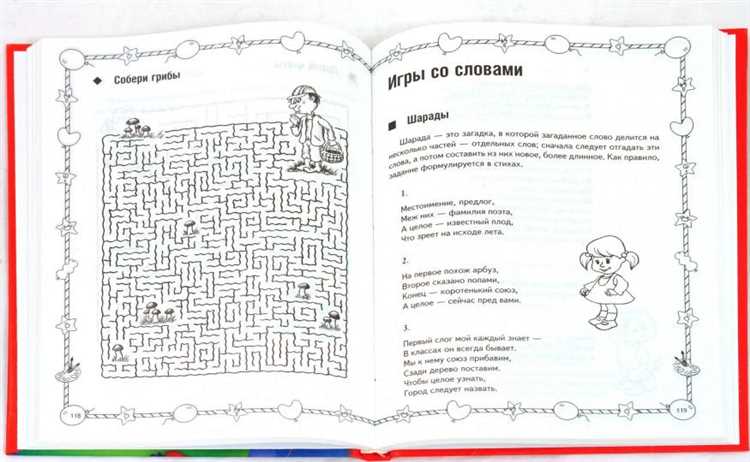 Собери грибы
118
Игры со словами
Шарады
Шарада — это загадка, в которой загаданное слово делится на
несколько частей — отдельных слов; сначала следует отгадать эти
слова, а потом составить из них новое, более длинное. Как правило,
задание формулируется в стихах.
1.
Местоимение, предлог,
Меж них — фамилия поэта,
А целое — известный плод,
Что зреет на исходе лета.
2.
На первое похож арбуз,
Второе сказано попами,
Конец — коротенький союз,
А целое — сейчас пред вами.
3.
Первый слог мой каждый знает —
В классах он всегда бывает.
Мы к нему союз прибавим,
Сзади дерево поставим.
Чтобы целое узнать,
Город следует назвать.
119